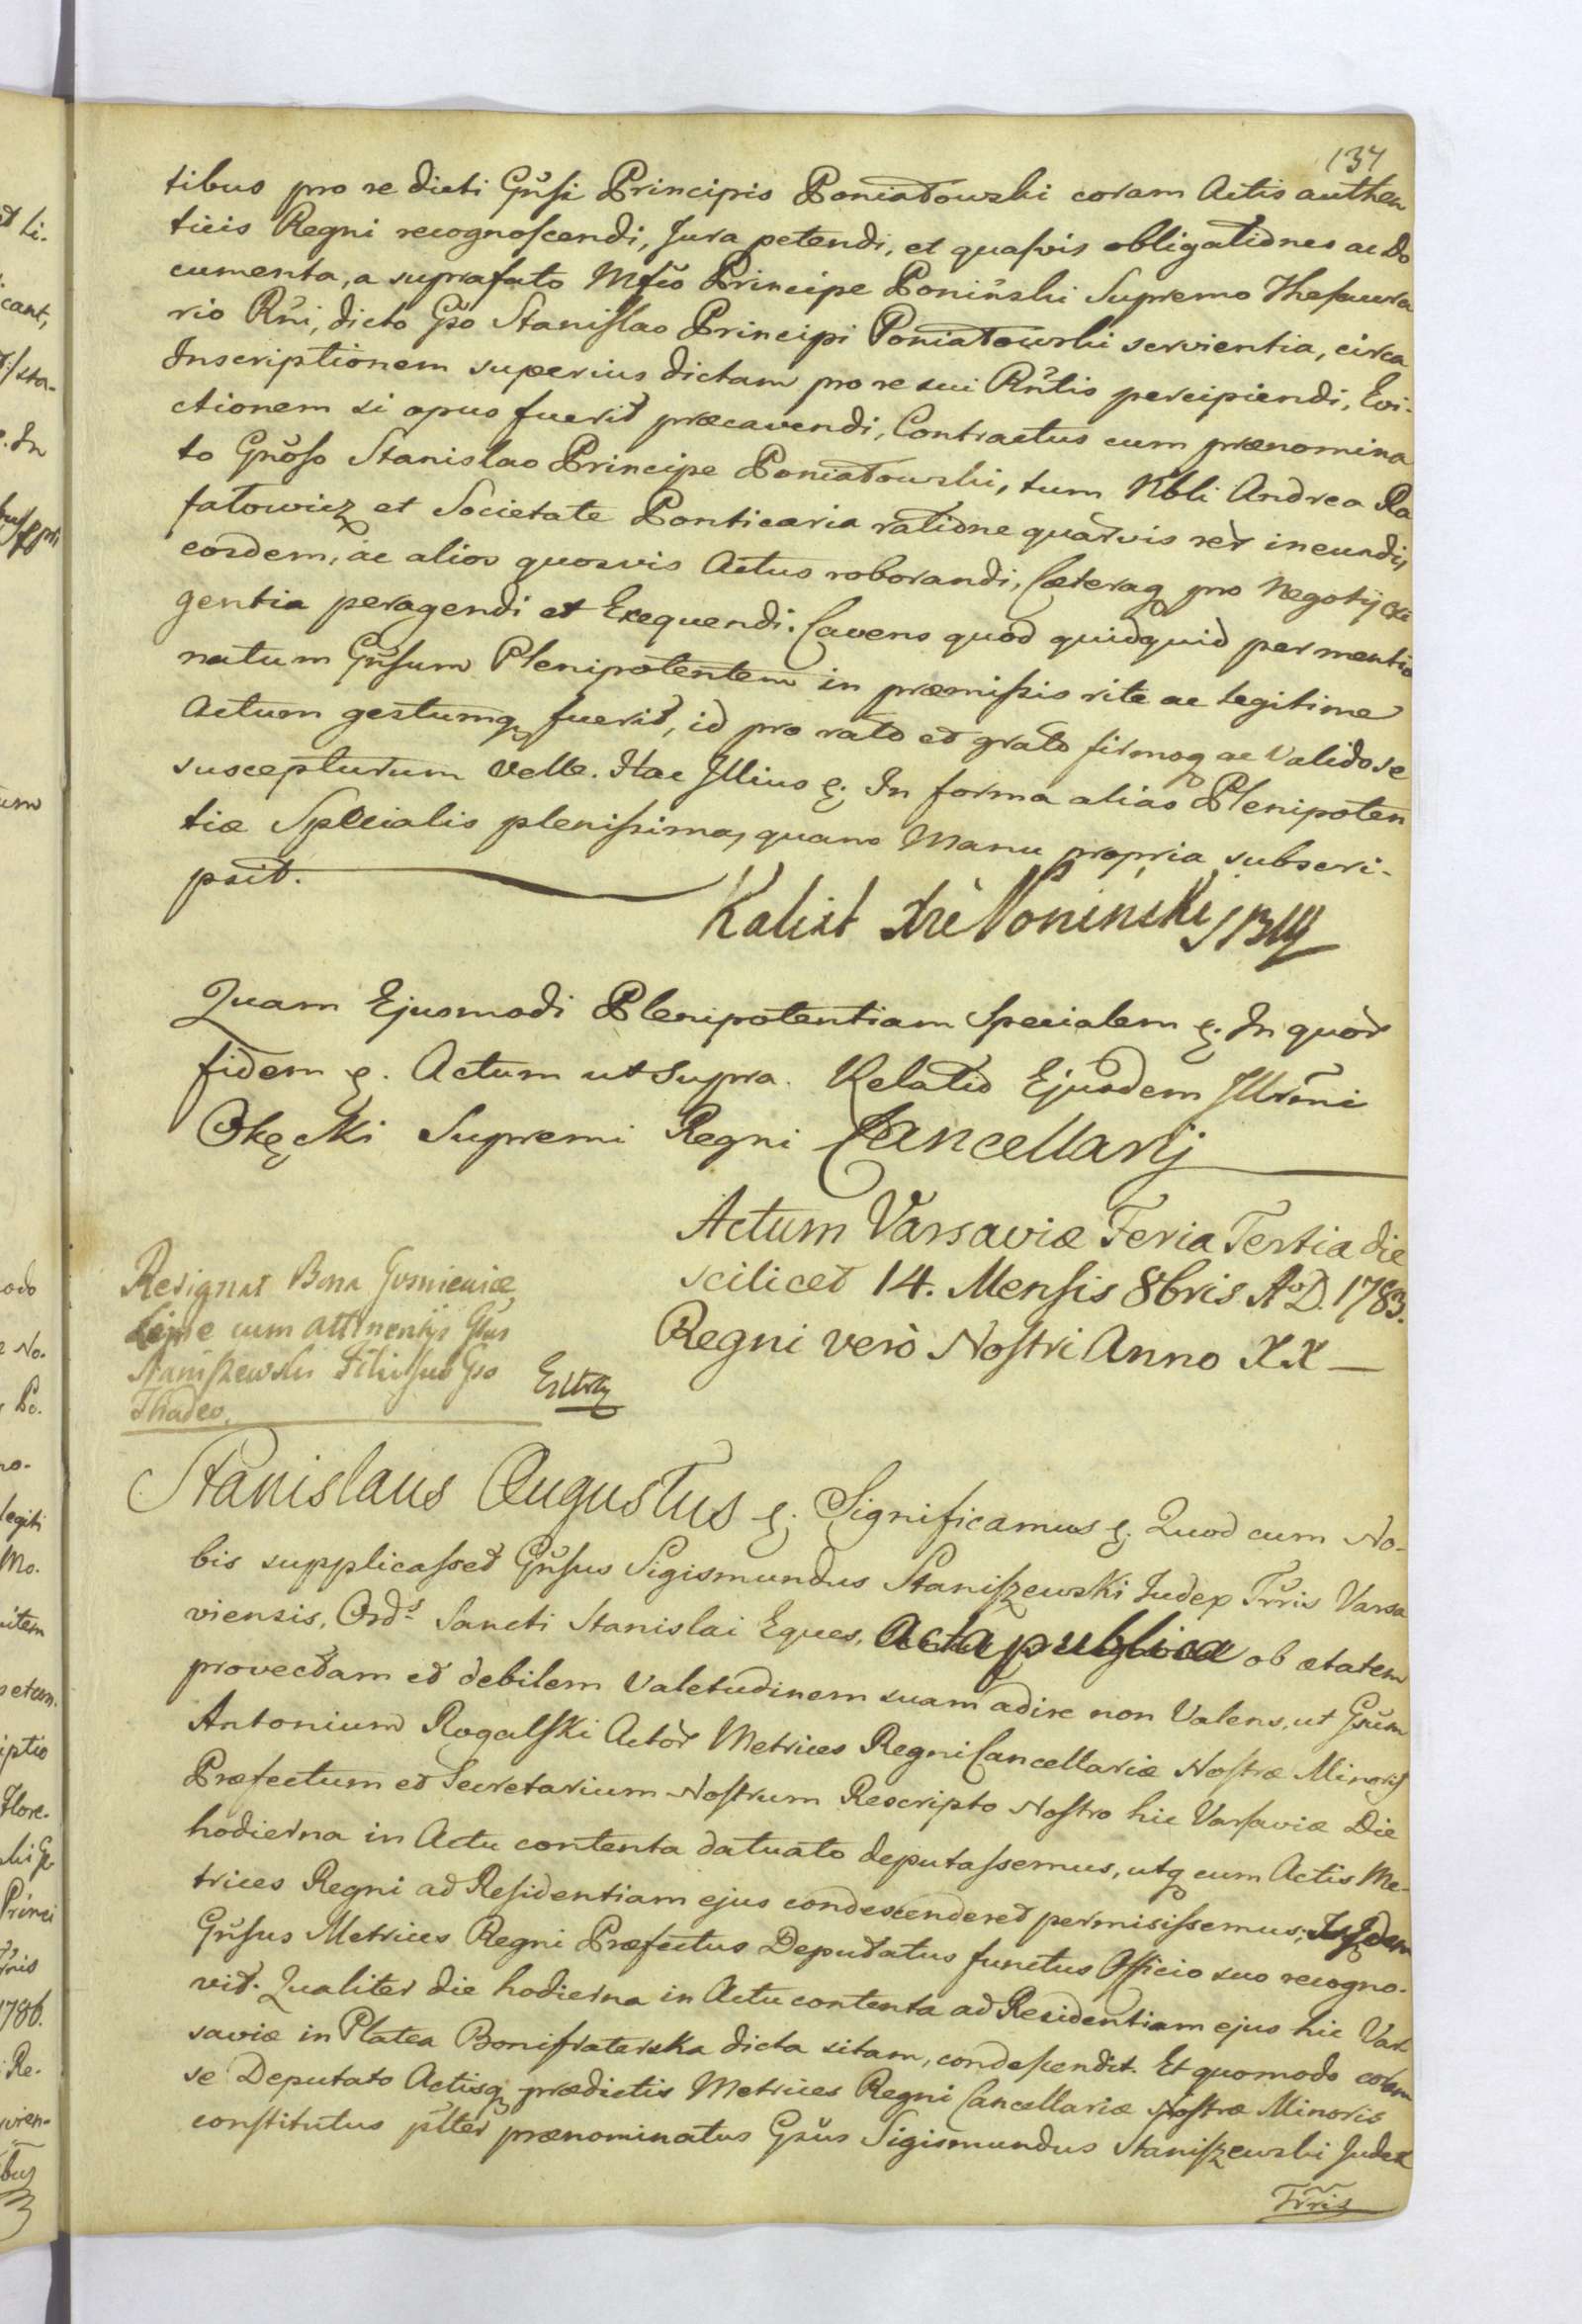 137
tibus pro re dicti Gnsi Principis Poniatowski coram Actis authen
ticis Regni recognoscendi, Jura petendi, et quasvis obligationes ac do
cumenta, a suprafato Mfco Principe Poniński Supremo Thesaura
rio Rni, dicto Gso Stanislao Principi Poniatowski servientia, circa
Inscriptionem superius dictam pro re sui Rntis percipiendi, Evi-
ctionem si opus fuerit præcavendi, Contractus cum prænomina
to Gnoso Stanislao Principe Poniatowski, tum Nbli Andrea Ra
fałowicz et Societate Ponticaria ratione quarvis rer ineundi,
eosdem, ac alios quosvis Actus roborandi, Cæteraq pro Negotij exi
gentia peragendi et Exequendi. Cavens quod quidquid per mentio
natum Gnsum Plenipotentem in præmissis rite ac legitime
Actum gestumq fuerit, id pro rato et grato firmoq ac Valido se
suscepturum velle. Hac Illius &. In forma alias Plenipoten
tiæ Specialis plenissima, quam Manu propria subscri-
psit.
Kalixt Xże Poniński
Quam Ejusmodi Plenipotentiam Specialem &. In quor
fidem &. Actum ut supra. Relatio Ejusdem Illrmi
Okęcki Supremi Regni Cancellarij
Actum Varsaviæ Feria Tertia die
scilicet 14. Mensis 8bris A⁰D. 1783.
Regni verò Nostri Anno XX
Resignat Bona
cum attinentijs Gsus
Staniszewski Filio suo Gso
Thadeo.
Extrtz
Stanislaus Augustus &. Significamus &. Quod cum No-
bis supplicasset Gnsus Sigismundus Staniszewski Judex Trris Varsa
viensis, Ords Sancti Stanislai Eques, Acta publica ob ætatem
provectam et debilem Valetudinem suam adire non Valens, ut Gsum
Antonium Rogalski Actor Metrices Regni Cancellariæ Nostræ Minoris
Præfectum et Secretarium Nostrum Rescripto Nostro hic Varsaviæ Die
hodierna in Actu contenta datuato deputassemus, utq cum Actis Me-
trices Regni ad Residentiam ejus condescenderet permisissemus; Isqdem
Gnsus Metrices Regni Præfectus Deputatus functus Officio suo recogno-
vit. Qualiter die hodierna in Actu contenta ad Residentiam ejus hic Var
saviæ in Platea Bonifraterska dicta sitam, condescendit. Et quomodo coram
se Deputato Actisq prædictis Metrices Regni Cancellariæ Nostræ Minoris
constitutus pltter prænominatus Gsus Sigismundus Staniszewski Judex
Trris